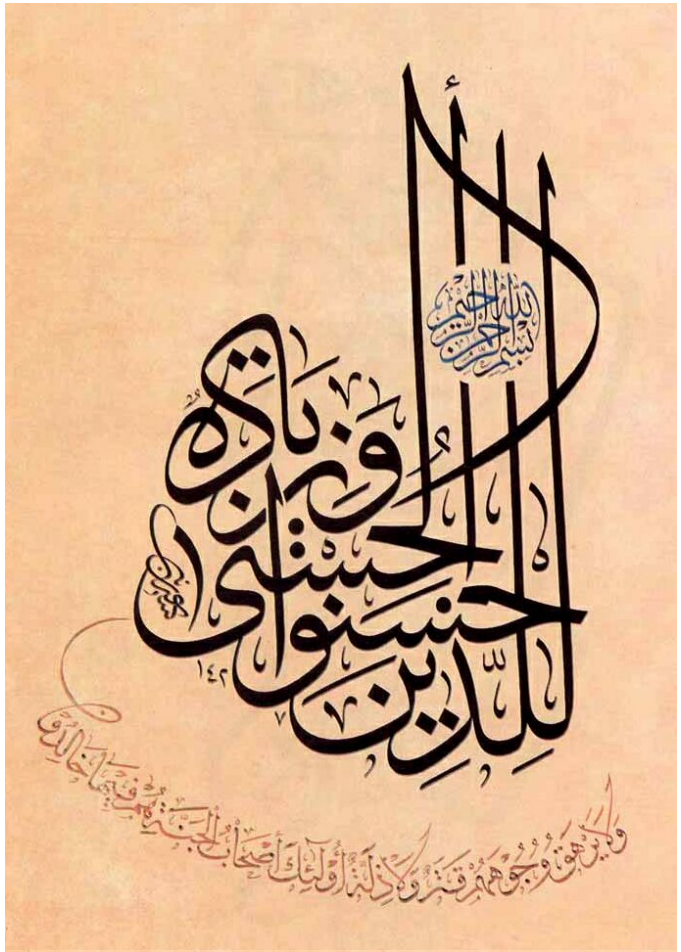 بِسْمِ اللهِ الرَّحْمٰنِ الرَّحِيْمِ
لِلَّذِينَ أَحْسَنُوا الْحُسْنَى وَزِيَادَةٌ
وَلَا يَرْهَقُ وُجُوهَهُمْ قَتَرٌ وَلَا ذِلَّةٌ أُولَئِكَ أَصْحَابُ الْجَنَّةِ هُمْ فِيهَا خَالِدُونَ